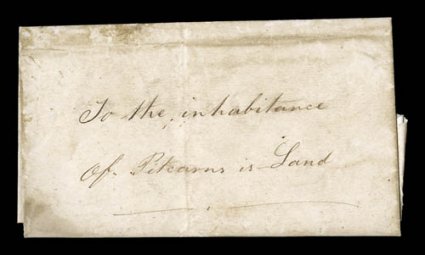 To the inhabitance
Of Pitcarns is Land